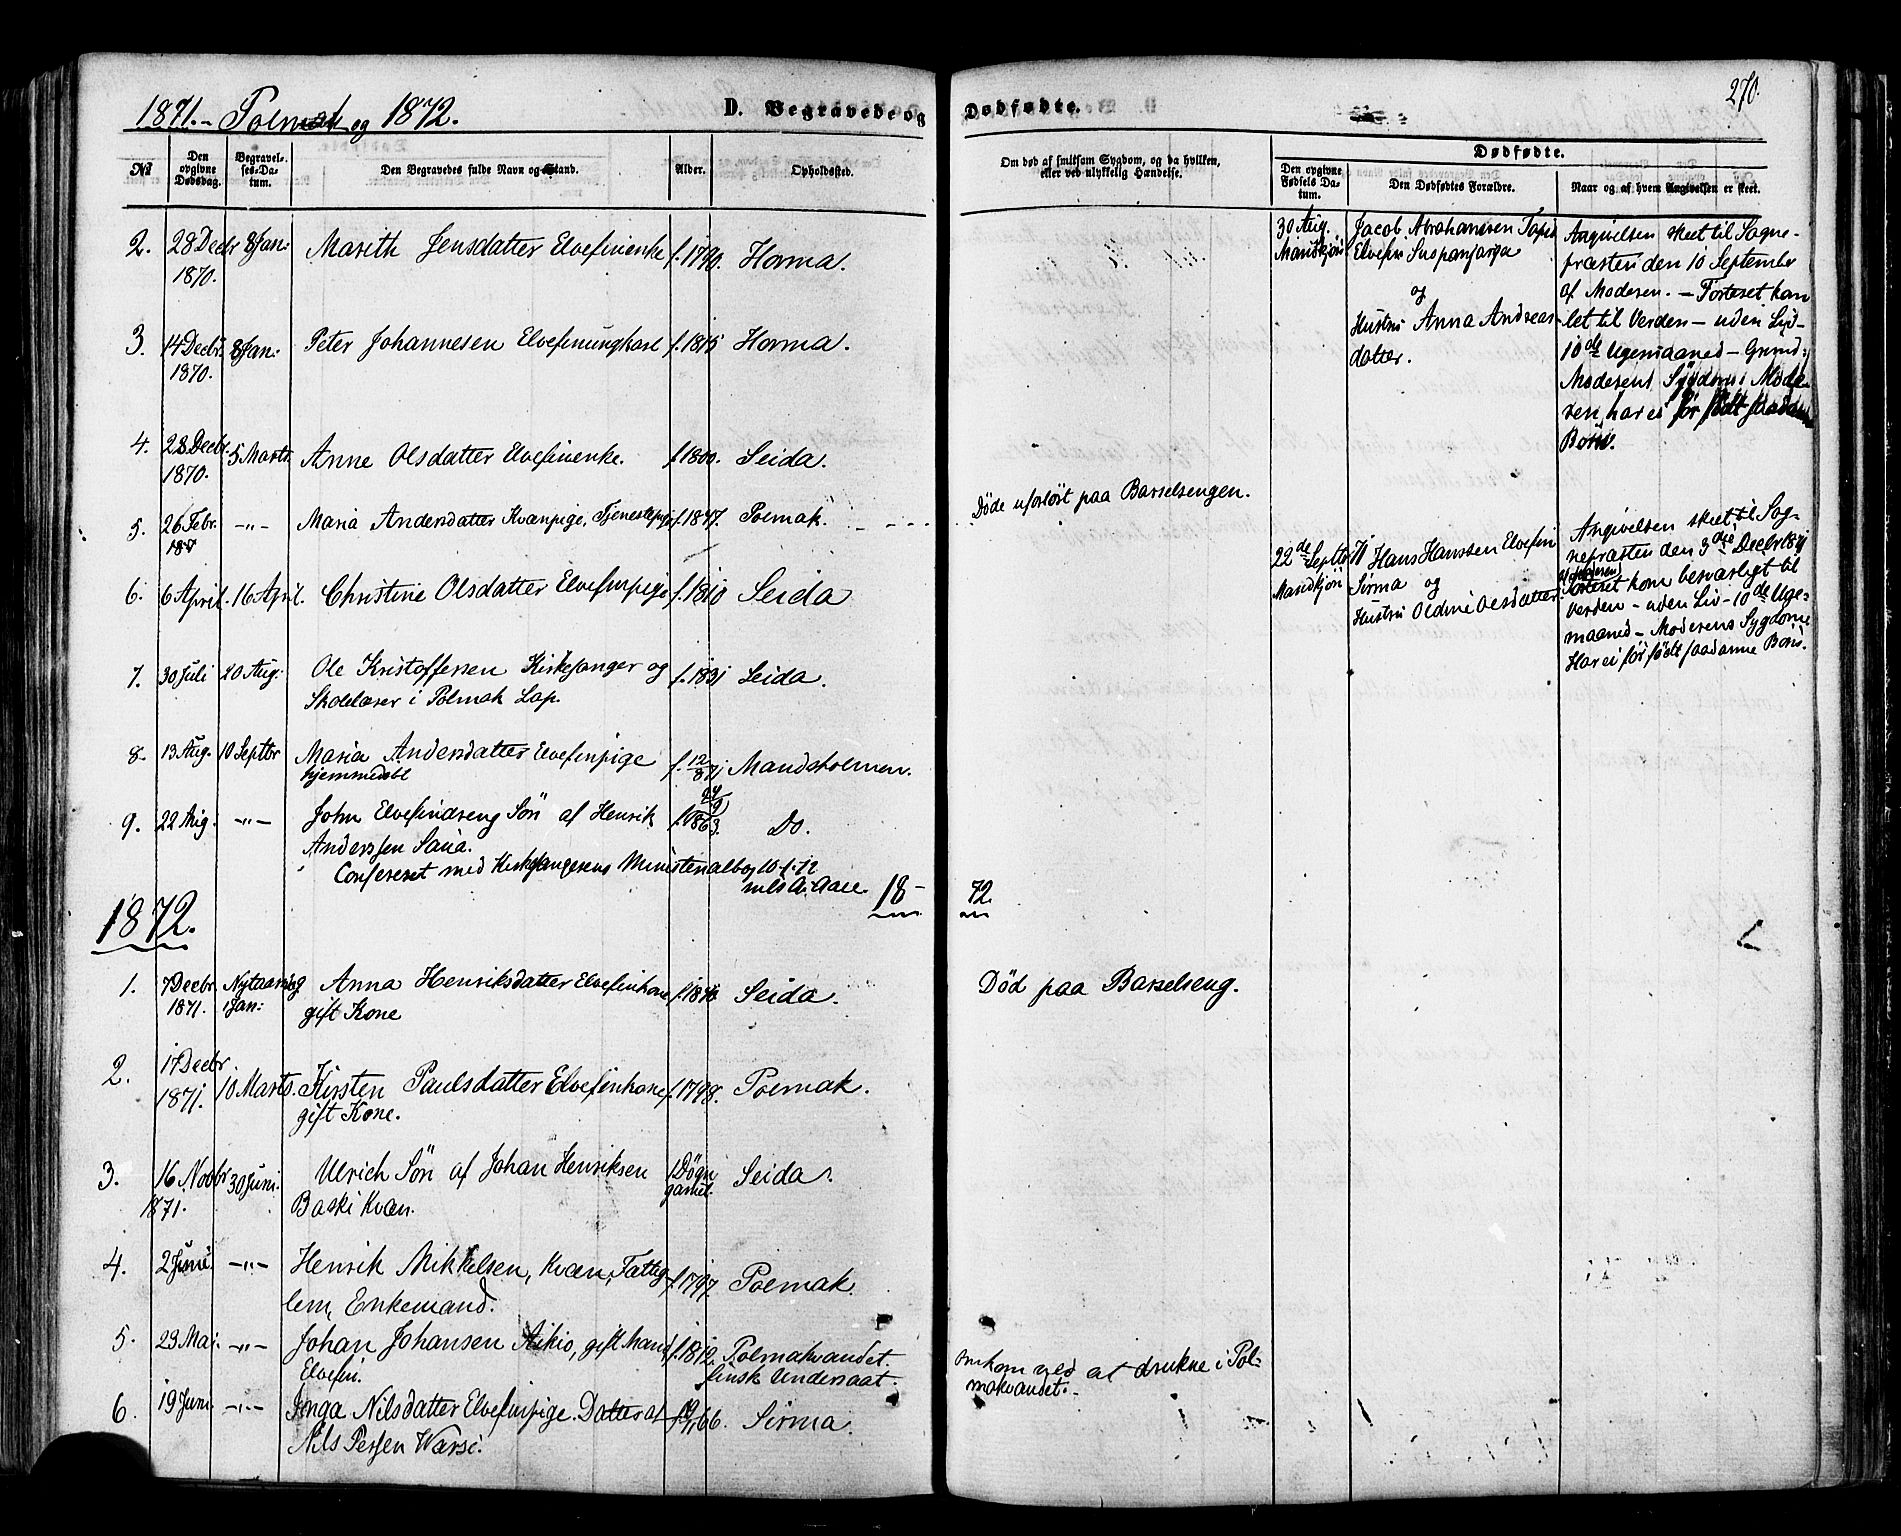 1871. Polmak og 1872.
D. Begravede og Dødfødte.
270.
No
Den opgivne Dødsdag.
Begravelses-Datum.
Den Begravedes fulde Navn og Stand.
Alder.
Opholdssted.
Om død af smitsom Sygdom, og da hvilken, eller ved ulykkelig Hændelse.
Dødfødte.
Den opgivne Fødsels Datum.
Den Dødfødtes Forældre.
Naar og af hvem Angivelsen er skeet.
2. 28 Decbr 1870. 8 Jan: Marith Jensdatter Elvefinenke f. 1790. Horma.
3. 14 Decbr. 1870. 8 Jan: Peter Johannesen Elvefinungkarl f. 1815 Horma.
4. 28 Decbr. 1870. 5 Marts Anne Olsdatter Elvefinenke. f. 1800. Seida.
5. 26 Febr. 1871 -"- Maria Andersdatter Kvænpige, Tjenestepige f. 1847. Polmak.
Døde uforløst paa Barselsengen.
6. 6 April. 16 April. Christine Olsdatter Elvefinpige f. 1810 Seida
7. 30 Juli 20 Aug: Ole Kristoffersen Kirkesanger og f. 1831 Seida.
Skolelærer i Polmak Lap.
8. 13 Aug. 10 Septbr Maria Andersdatter Elvefinpige f. 12/8 71 Mandsholmen.
hjemmedøbt
9. 22 Aug. -"- John Elvefindreng Søn af Henrik f. 24/9 1863. Do.
Anderssen Saia.
Confereret med Kirkesangerens Ministerialbog 10-1-72
Nils A. Aall.
18-72.
30 Aug. Mandkjøn
Jacob Abrahamsen
Elvefin
og
Hustru Anna Andreas-
datter.
Angivelsen skeet til Sogne-
præsten den 10 Septembr
af Moderen. - Fosteret kom
let til Verden - uden Liv-
10de Ugemaaned - Grund:
Moderens Sygdom; Mode-
ren har ei før født saadanne
Børn.
22de Septbr 71 Mandkjøn
Hans Hanssen Elvefin
Sirma og
Hustru Oldine Olsdatter
Angivelsen skeet til Sog-
nepræsten den 3die Decbr 1871
af Moderen
Fosteret kom besværligt til
Verden - uden Liv - 10de Uge-
maaned - Moderens Sygdom
Har ei før født saadanne Børn.
1872.
1. 7 Decbr. 1871. Nytaarsdag 1 Jan: Anna Henriksdatter Elvefinkone Seida.
gift Kone
Død paa Barselseng.
2. 17 Decbr. 1871. 10 Marts. Kirsten Paulsdatter Elvefinkone f. 1798. Polmak.
gift Kone.
3. 16 Novbr 1871. 30 Juni. Ulrich Søn af Johan Henriksen 1 Døgn gamel. Seida.
Baski Kvæn.
4. 2 Juni. -"- Henrik Mikkelsen, Kvæn, Fattig- f. 1797. Polmak.
lem, Enkemand.
5. 23 Mai. -"- Johan Johansen Aikio, gift Mand f. 1812. Polmakvandet.
Elvefin. finsk Undersaat.
omkom ved at drukne i Pol-
makvandet.
6. 19 Juni. -"- Inga Nilsdatter Elvefinpige. Datter af 66. Sirma.
Nils Persen Warsi.